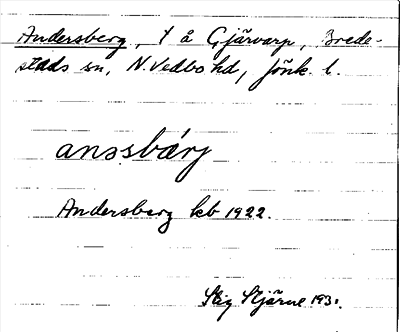 Andersberg, t å Gjärvarp, Brede-
stads sn, N. Vedbo hd, Jönk. l.
anssbärj
Andersberg kb 1922.
Stig Stjärne 193.